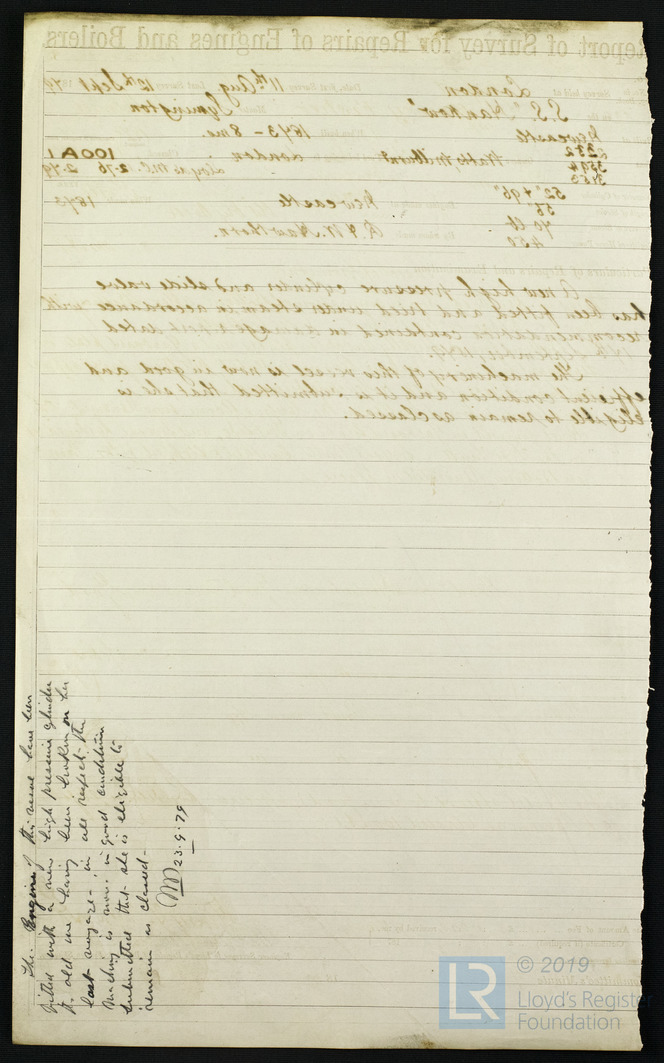 Report of Survey for Repairs of Engines and Boilers.
London 11th Aug 12th Sept 1879
S.S. "Hankow" Symington
Newcastle 1873 - 8 mo.
2332 Watts, Milburn London 100A1
3594 Lloyds M.C. 2.76 2.79
3163
52" & 96" Newcastle 1873
56"
70 lb R & W. Hawthorn.
450
A new high pressure cylinder and slide valve
has been fitted and tried under steam in accordance with
recommendation contained in damage report dated
September, 1879.
The machinery of this vessel is now in good and
efficient condition and it is submitted that she is
eligible to remain as classed.
The Engines of this vessel have been
fitted with a new high pressure cylinder
the old one having been broken on her
last voyage - in all respects the
machinery is now in good condition
submitted that she is eligible to
remain as classed -
23.9.79
LR © 2019
Lloyd's Register
Foundation